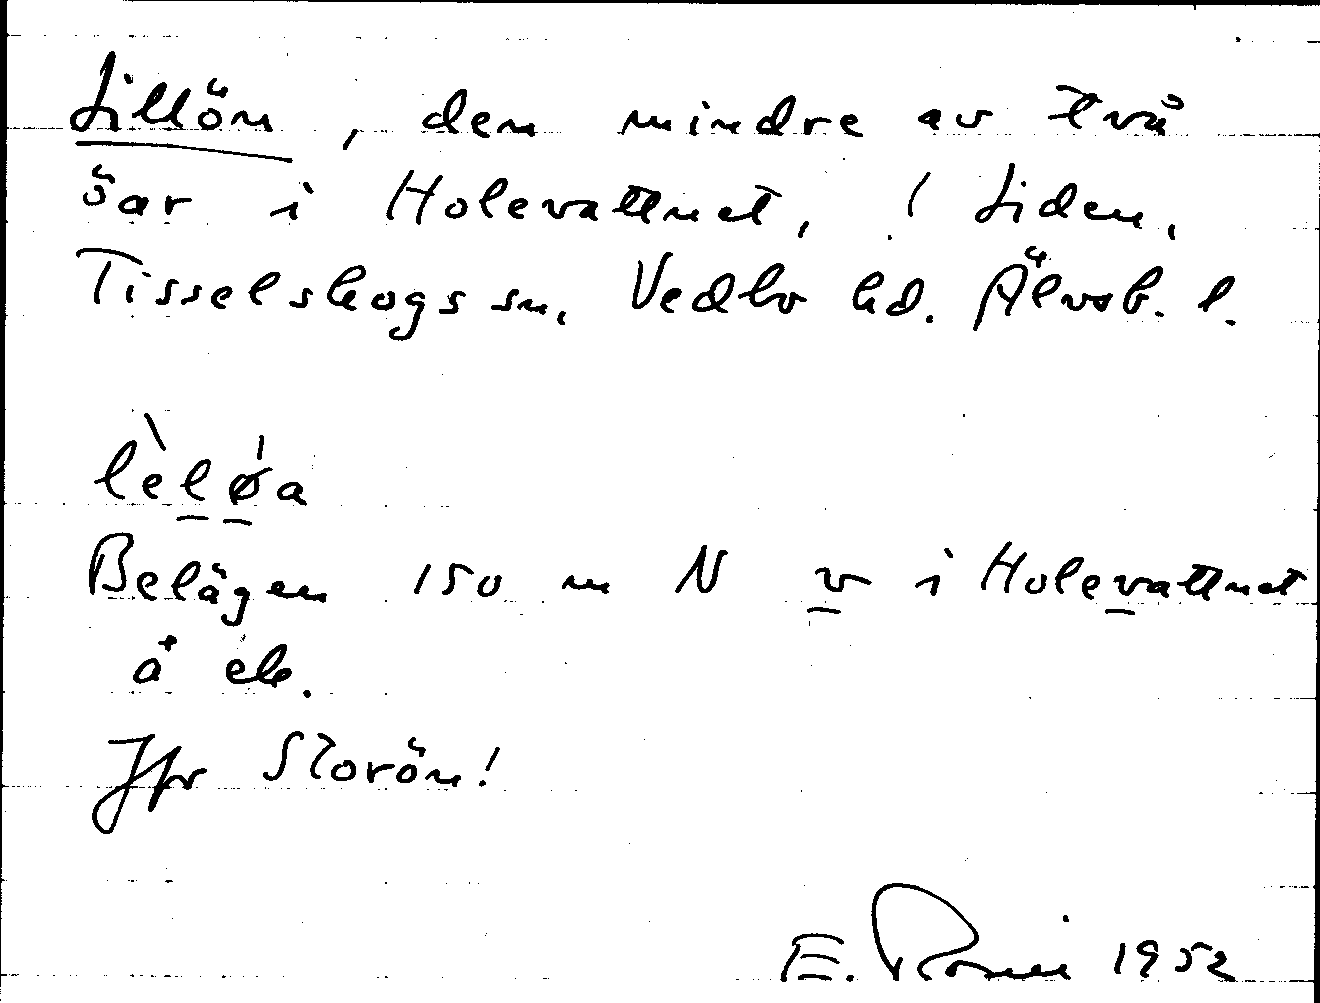 Lillön, den mindre av två
öar i Holevattnet, ! Liden,
Tisselskogs sn, Vedbo hd. Älvsb. l.
lèløa
Belägen 150 m N v i Holevattnet
å ek.
Jfr Storön!
E. 1952